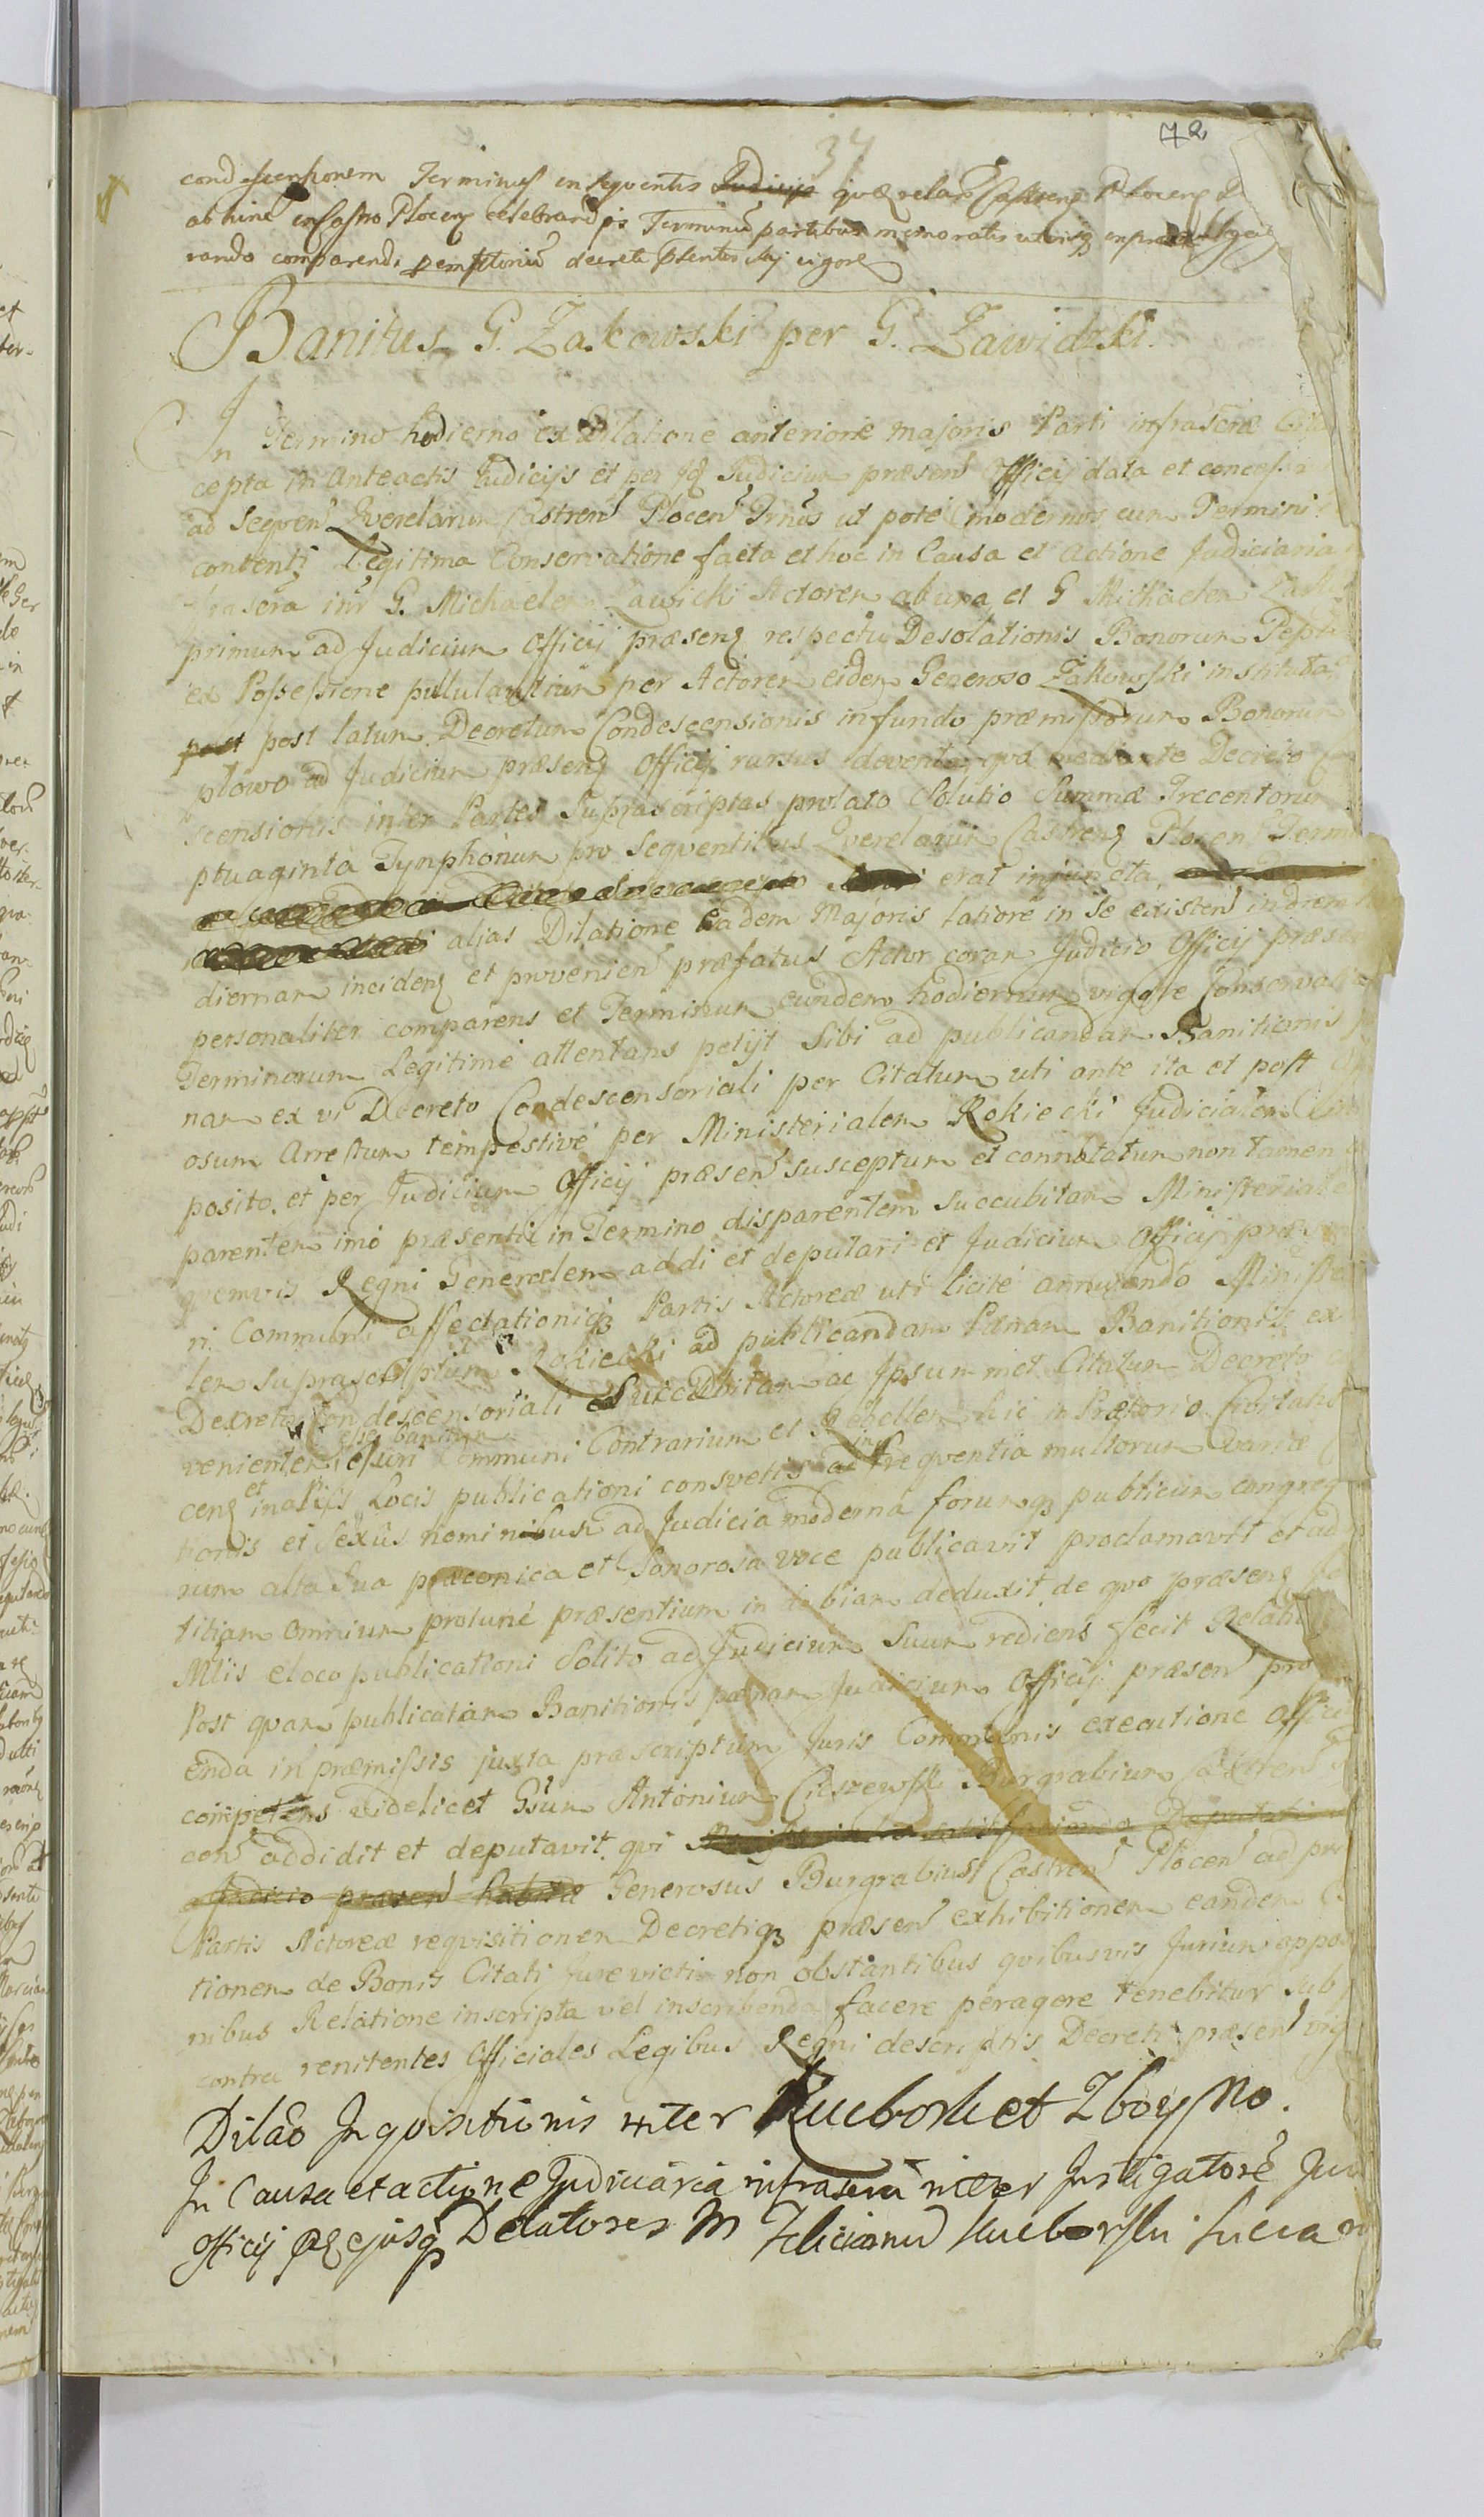 72
37
condescensionem Terminus insequentis Judicij quærelarū Castren Plocen
ab hinc in Castro Plocen celebrand pis Terminū partibus memoratis utrisq
rando comparendi peremptoriū decreti pñtis sui vigore
Banitus G. Żakowski per G. Zawidzki.
In Termino hodierno ex Dilatione anteriore majoris Parti infrascræ
cepta in anteactis Judicijs et per Jd Judicium præsen Officij data et concessa
ad Seqven Qverelarum Castren Plocen Trnūs ut pote modernus cum Termini
content Legitima Conservatione facta et hoc in Causa et actione Judiciaria
frascra intr G. Michaelem Zawicki Actorem ab una, et G Michaelem Zak
primum ad Judicium Officij præsen respectu Desolationis Bonorum Pep
ex Possessione pullulantium per Actorem eidem Generoso Żakowski instituta
post post latum Decretum Condescensionis in fundo præmissorum Bonorum
płowo ad Judicium præsen Officij rursus devenit, qvod mediante Decreto
scensionis inter Partes Suprascriptas prolato Solutio Summæ Trecentorum
ptuaginta Tynphonum pro Seqventibus Qverelarum Castren Plocen Termi
erat injuncta,
alias Dilatione eadem Majoris latiore in Se existen in diem
diernam inciden et provenien præfatus Actor coram Judicio Officij præsen
personaliter comparens et Terminum eundem hodiernum vigore Conservatia
Terminorum Legitime attentans petijt Sibi ad publicandam Banitionis
nam ex vi Decreto Condescensoriali per Citatum uti ante ita et post
osum Arrestum tempestive per Ministerialem Rokiecki Judicialem
posito, et per Judicium Officij præsen susceptum et connotatum non tamen
parentem imo præsentii in Termino disparentem succubitam Ministeriale
qvemvis Regni Generalem addi et deputari et Judicium Officij præsen
ri Communi affectationiq Partis Actoreæ uti licite annuendo Ministe
lem suprascriptum Rokiecki ad publicandam Pænam Banitionis ex
Decreto Condescensoriali Succubitam ac Ipsummet Citatum Decreto
esse banitum
venientem esuri Communi Contrarium et Rebellem hic in Prætorio Civitatis
cen et in alijs Locis publicationi consvetis ac in freqventia multorum variæ
tionis et Sexus hominibus ad Judicia moderna forumq publicum congreg
rum alta Sua præconica et Sonorosa voce publicavit proclamavit et ad
titiam omnium protunc præsentium in debiam deduxit, de qvo præsen
Mlis e loco publicationi Solito ad Judicium Suum rediens fecit Relati
Post qvam publicatam Banitionis pænam Judicium Officij præsen pro
enda in præmissis juxta præscriptum Juris Communis executione Offici
competens videlicet Gsum Antonium Cieszewski Burgrabium Castren
cen addidit et deputavit, qvi Deputati
a Judicio præsen habitæ Generosus Burgrabius Castren Plocen ad pri
Partis Actoreæ reqvisitionem Decretiq præsen exhibitionem eandem
tionem de Bonis Citati Jurevicti non obstantibus qvibusvis Jurium oppo
nibus Relatione inscripta vel inscribenda facere peragere tenebitur sub
contra renitentes Officiales Legibus Regni descriptis Decreti præsen vig
Dilāo Inqvisitionis inter Kuebork et Zboyno.
In Causa et actione Judiciaria infrascra inter Instigatorē Jud
Officij ejusq Delatores M Felicianū